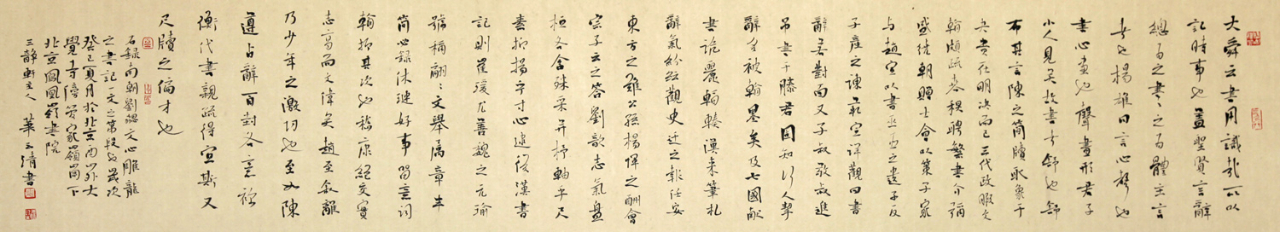 大舜云書用識哉所以
記時事也盖聖賢言辭
總為之書書之為體主言
者也揚雄曰言心聲也
書心畫也聲畫形君子
小人見矣故書者舒也舒
布其言陳之簡牘取象于
夬貴在明決而已三代政暇文
翰頗疏春秋聘繁書介彌
盛繞朝贈士會以策子家
与趙宣以書巫臣之遺子反
子產之諫范宣詳觀四書
辭若對面又子叔敬叔進
吊書于滕君固知行人挈
辭多被翰墨矣及七國獻
書詭麗輻輳漢來筆札
辭氣紛紜觀史遷之報任安
東方之難公孫楊惲之酬會
宗子云之答劉歆志氣盤
桓各含殊采并杼軸乎尺
素抑揚乎寸心逮後漢書
記則崔瑗尤善魏之元瑜
號稱翩翩文舉屬章半
簡必録休璉好事留意詞
翰抑其次也嵇康絕交實
志高而文偉矣趙至叙離
乃少年之激切也至如陳
遵占辭百封各意禰
衡代書親疏得宜斯又
尺牘之偏才也
右録南朝劉勰文心雕龍
之書記一文之第段也歲次
癸巳夏月於北京西山外大
覺寺傍家嶺下
北京鳳凰嶺書院
三静軒主人 華清書